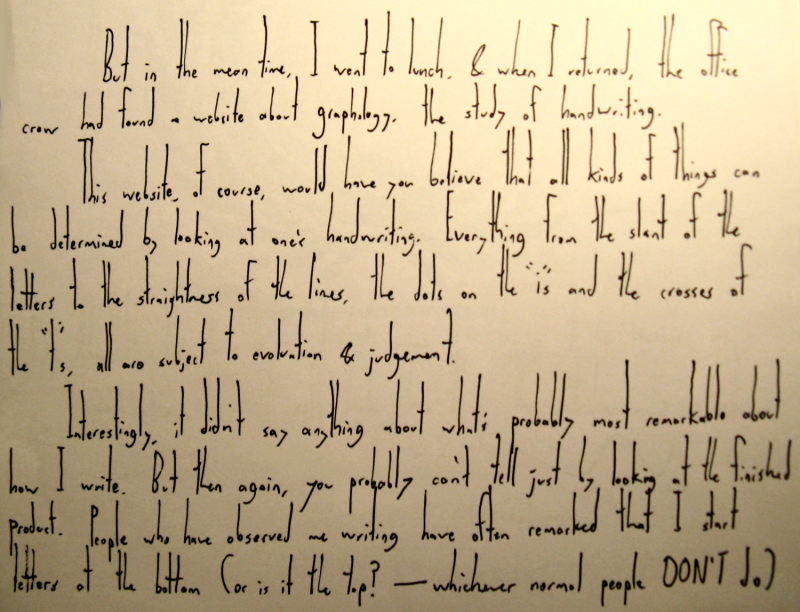 But in the mean time, I went to lunch. & when I returned, the office
crow had found a website about graphology. the study of handwriting.
This website, of course, would have you believe that all kinds of things can
be determined by looking at one's handwriting. Everything from the slant of the
letters to the straightness of the lines, the dots on the "i"s and the crosses of
the "t"s, all are subject to evaluation & judgement.
Interestingly, it didn't say anything about what's probably most remarkable about
how I write. But then again, you probably can't tell just by looking at the finished
product. People who have observed me writing have often remarked that I start
letters at the bottom (or is it the top? — whichever normal people DON'T do)